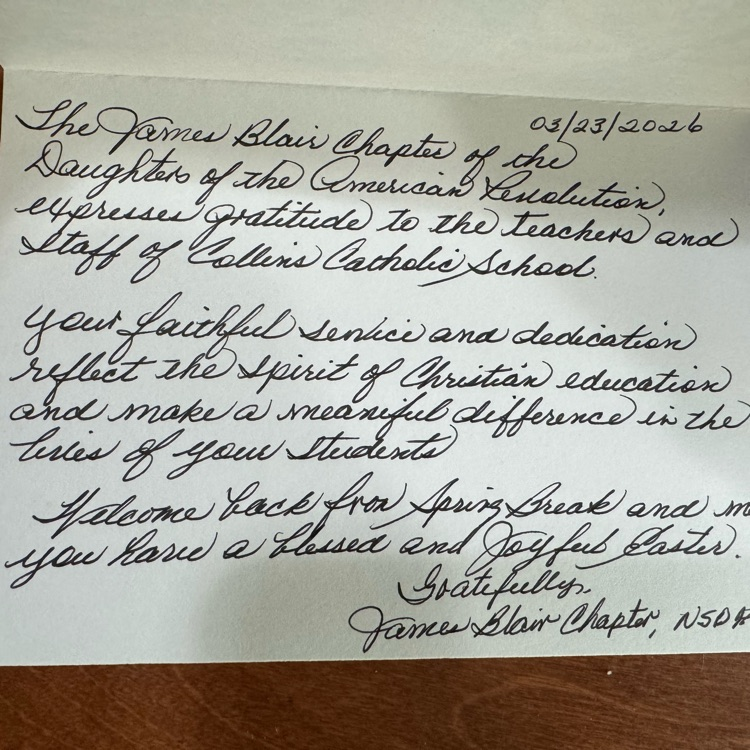 03/23/2026
The James Blair Chapter of the
Daughters of the American Revolution,
expresses gratitude to the teachers and
Staff of Collins Catholic School.
Your faithful service and dedication
reflect the spirit of Christian education
and make a meaniful difference in the
lives of your students
Welcome back from Spring Break and
you have a blessed and Joyful Easter.
Gratefully,
James Blair Chapter,